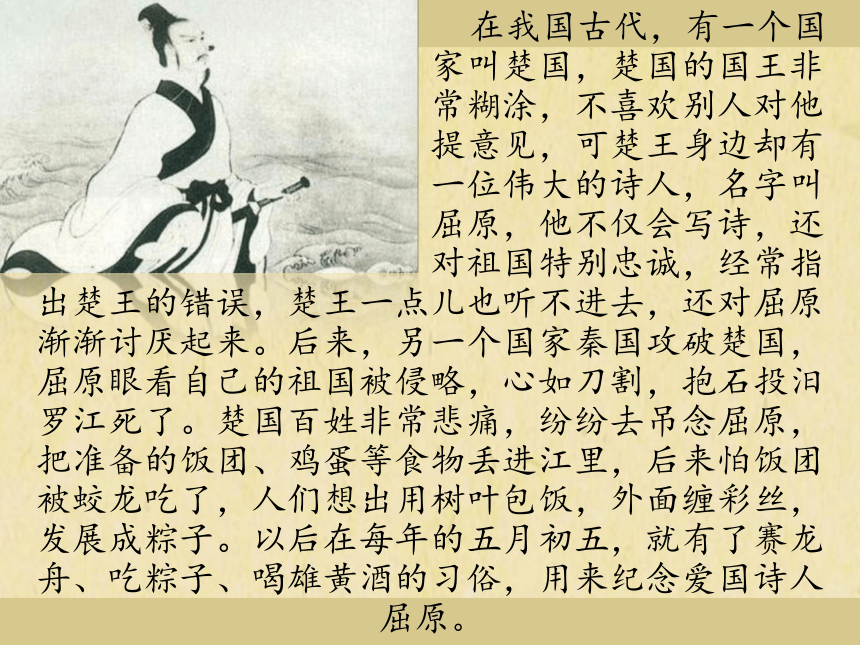 在我国古代，有一个国
家叫楚国，楚国的国王非
常糊涂，不喜欢别人对他
提意见，可楚王身边却有
一位伟大的诗人，名字叫
屈原，他不仅会写诗，还
对祖国特别忠诚，经常指
出楚王的错误，楚王一点儿也听不进去，还对屈原
渐渐讨厌起来。后来，另一个国家秦国攻破楚国，
屈原眼看自己的祖国被侵略，心如刀割，抱石投汨
罗江死了。楚国百姓非常悲痛，纷纷去吊念屈原，
把准备的饭团、鸡蛋等食物丢进江里，后来怕饭团
被蛟龙吃了，人们想出用树叶包饭，外面缠彩丝，
发展成粽子。以后在每年的五月初五，就有了赛龙
舟、吃粽子、喝雄黄酒的习俗，用来纪念爱国诗人
屈原。